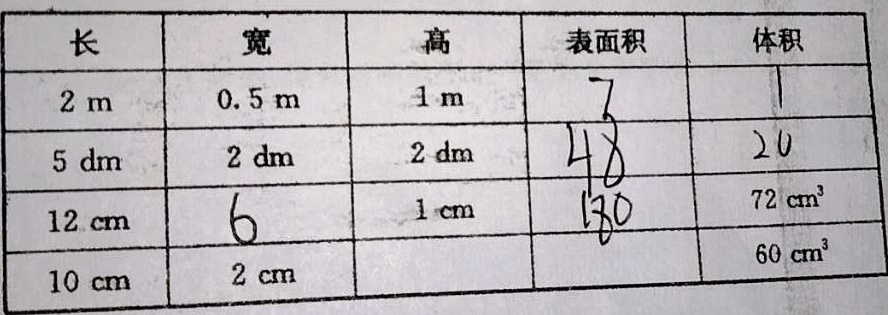 长 宽 高 表面积 体积
2 m 0.5 m 1 m 7 1
5 dm 2 dm 2 dm 48 20
12 cm 6 1 cm 180 72 cm³
10 cm 2 cm 60 cm³